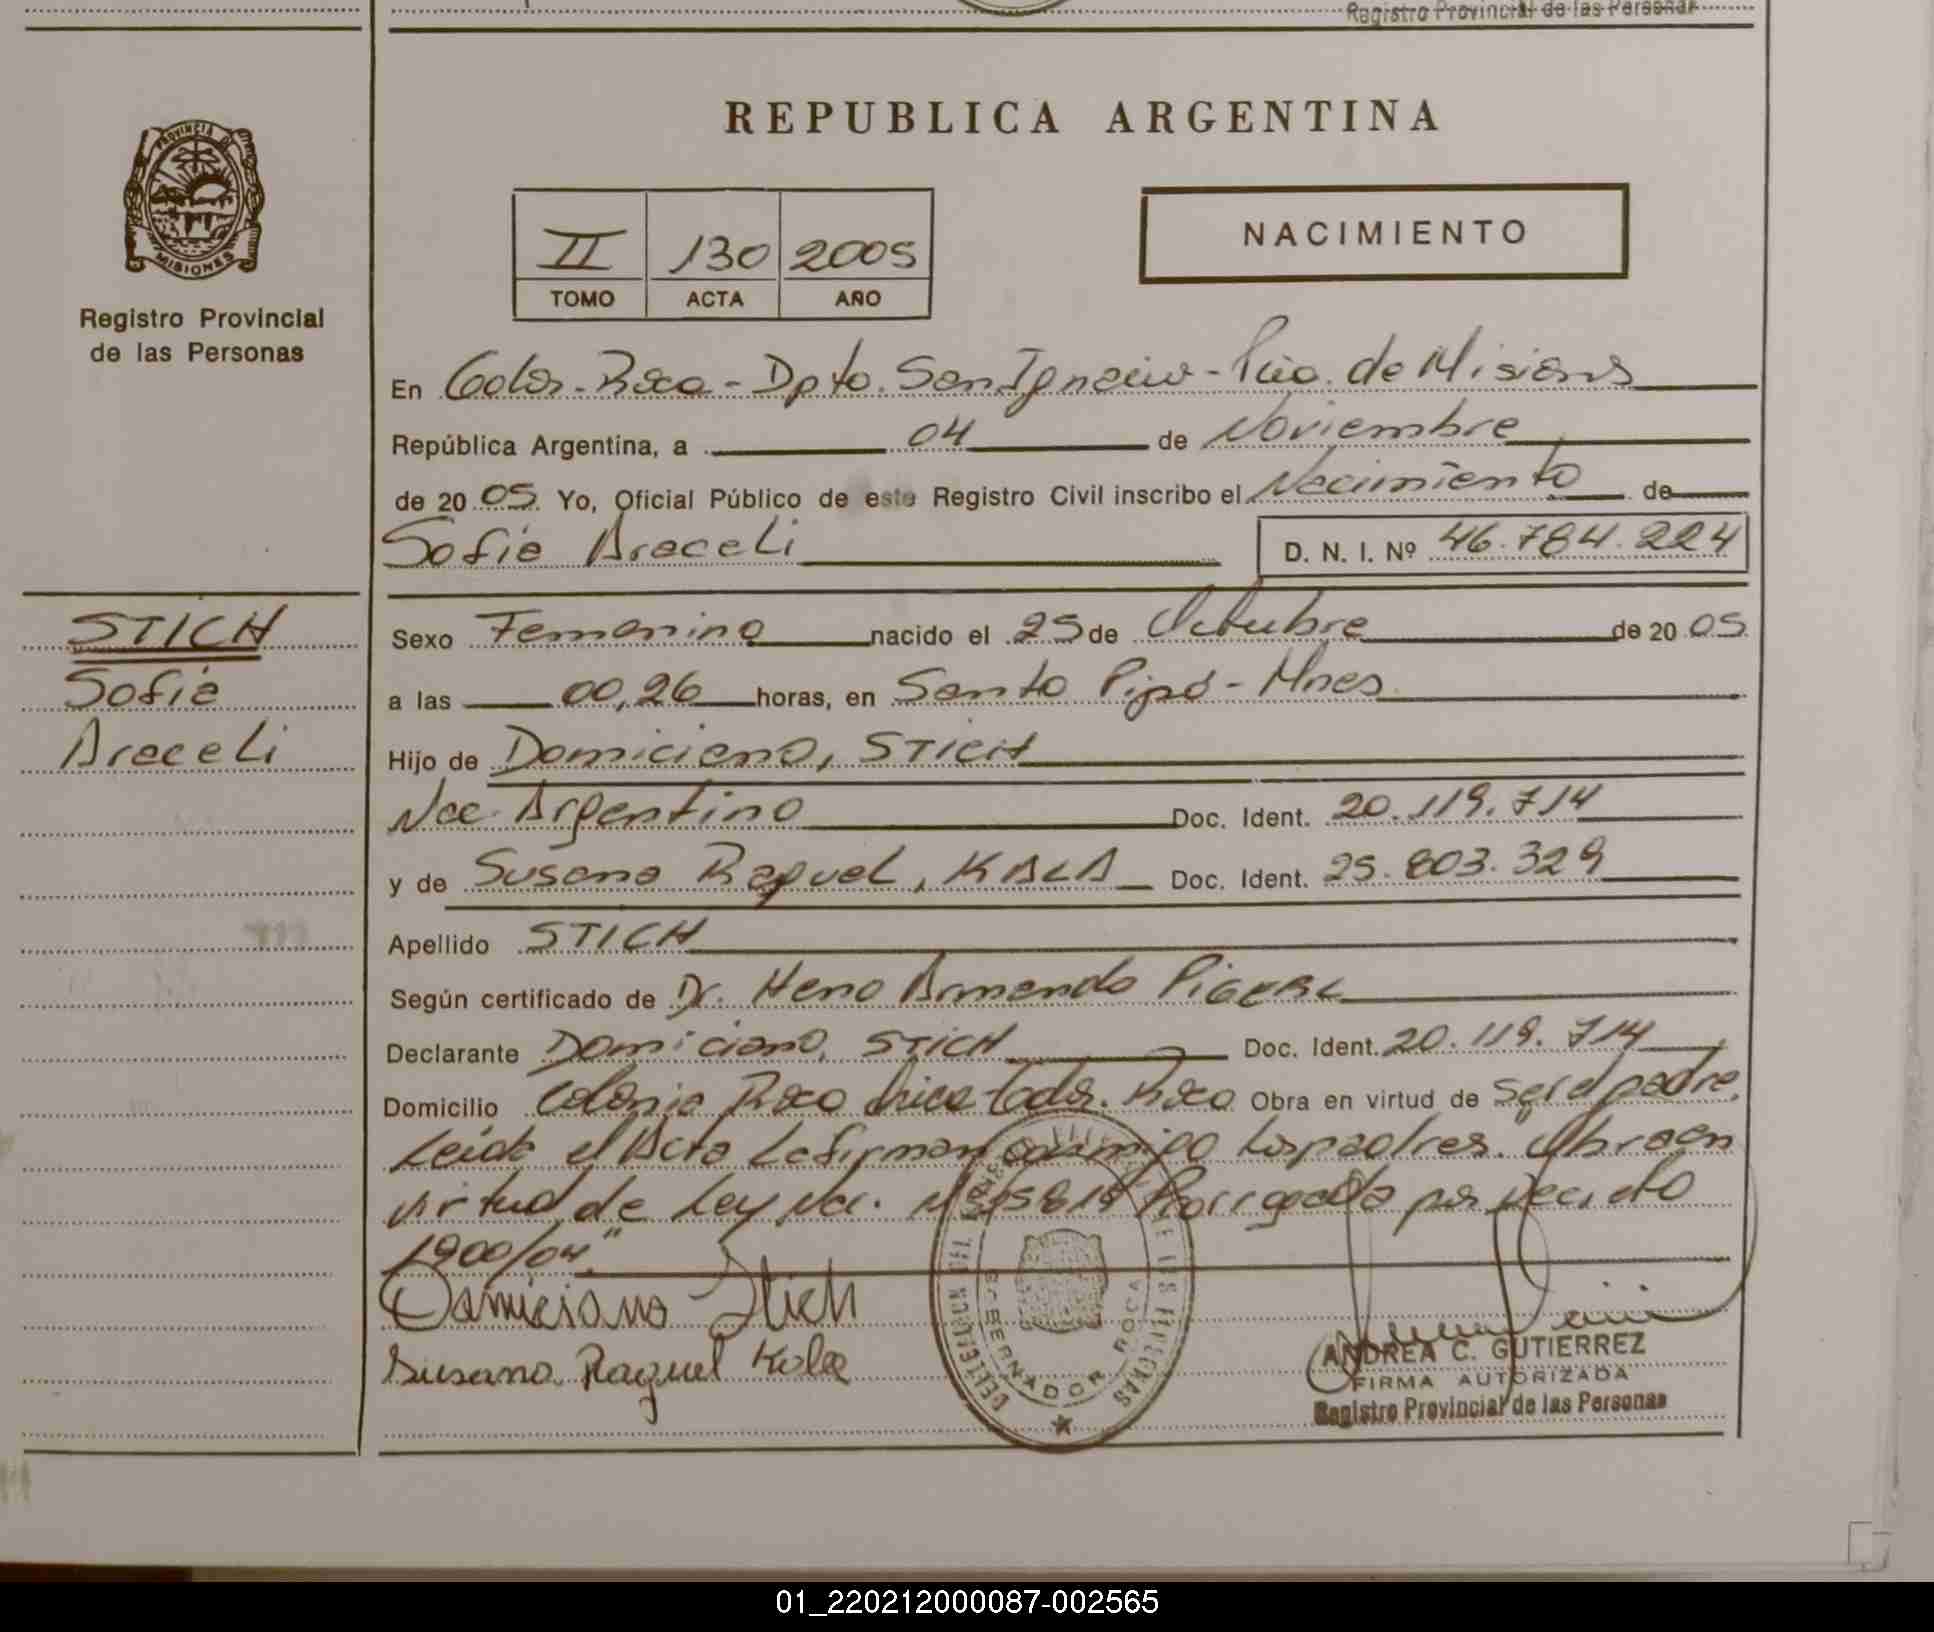 Registro Provincial de las Personas
PROVINCIA DE
MISIONES
Registro Provincial
de las Personas
REPUBLICA ARGENTINA
II 130 2005
TOMO ACTA AÑO
NACIMIENTO
En Gdor. Roca - Dpto. San Ignacio - Pcia. de Misiones
República Argentina, a 04 de Noviembre
de 20 05 Yo, Oficial Público de este Registro Civil inscribo el Nacimiento de
Sofia Araceli D. N. I. Nº 46.784.224
STICH
Sofia
Araceli
Sexo Femenino nacido el 25 de Octubre de 20 05
a las 00,26 horas, en Santo Pipó - Mnes
Hijo de Domiciano, STICH
Nac. Argentino Doc. Ident. 20.119.714
y de Susana Raquel, KALA Doc. Ident. 25.803.329
Apellido STICH
Según certificado de Dr. Armando
Declarante Domiciano, STICH Doc. Ident. 20.119.714
Domicilio Colonia Roca Chica Gdor. Roca Obra en virtud de ser el padre.
Leida el Acta La firman conmigo los padres. Obra en
virtud de Ley Nac. Nº Prorrogada por Decreto
1900/04"
Domiciano Stich
Susana Raquel Kala
GOBERNADOR ROCA
DE LAS PERSONAS
ANDREA C. GUTIERREZ
FIRMA AUTORIZADA
Registro Provincial de las Personas
01_220212000087-002565